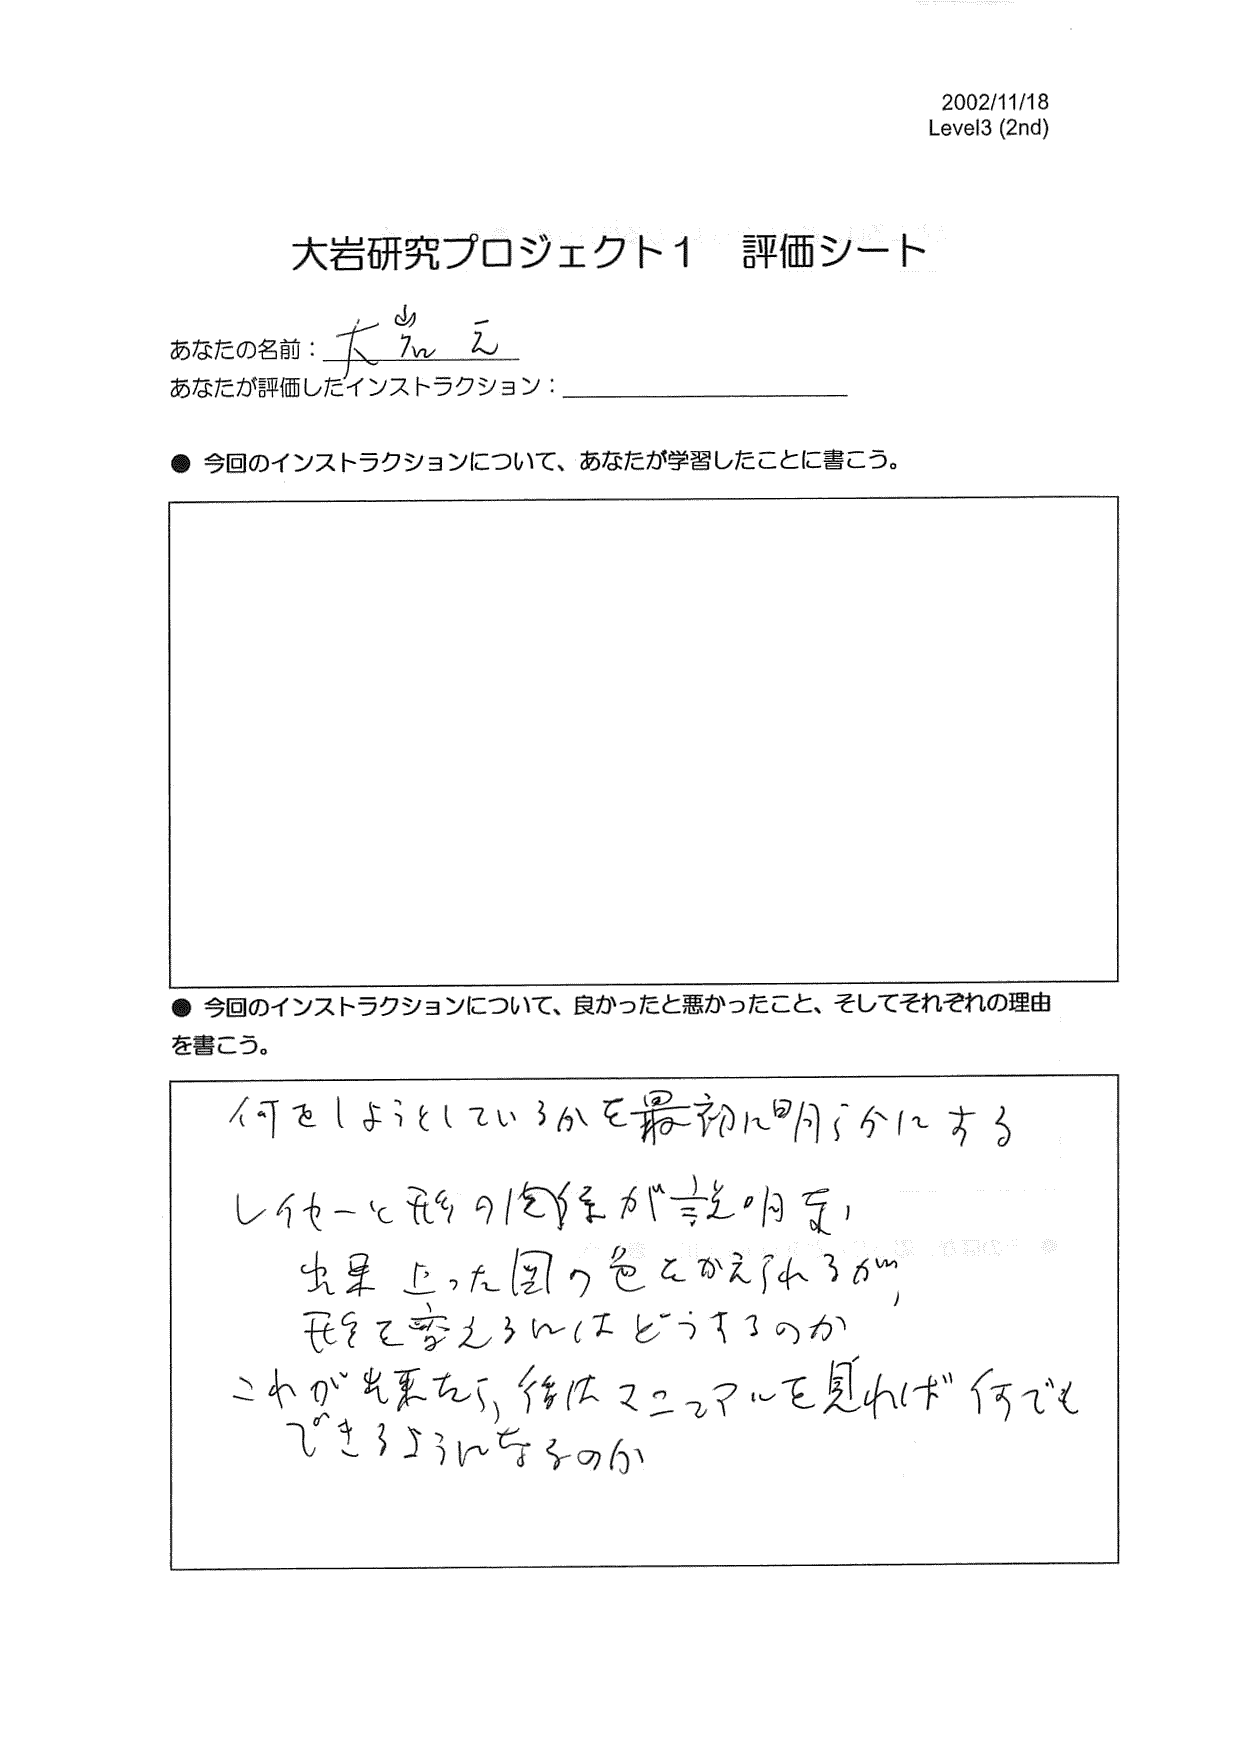 2002/11/18
Level3 (2nd)
大岩研究プロジェクト1　評価シート
あなたの名前：大岩 元
あなたが評価したインストラクション：
● 今回のインストラクションについて、あなたが学習したことに書こう。
● 今回のインストラクションについて、良かったと悪かったこと、そしてそれぞれの理由
を書こう。
何をしようとしているかを最初に明らかにする
レイヤーと形の関係が説明
出来上った図の色をかえられるが、
形を変えるにはどうするのか
これが出来たら、後はマニュアルを見れば何でも
できるようになるのか